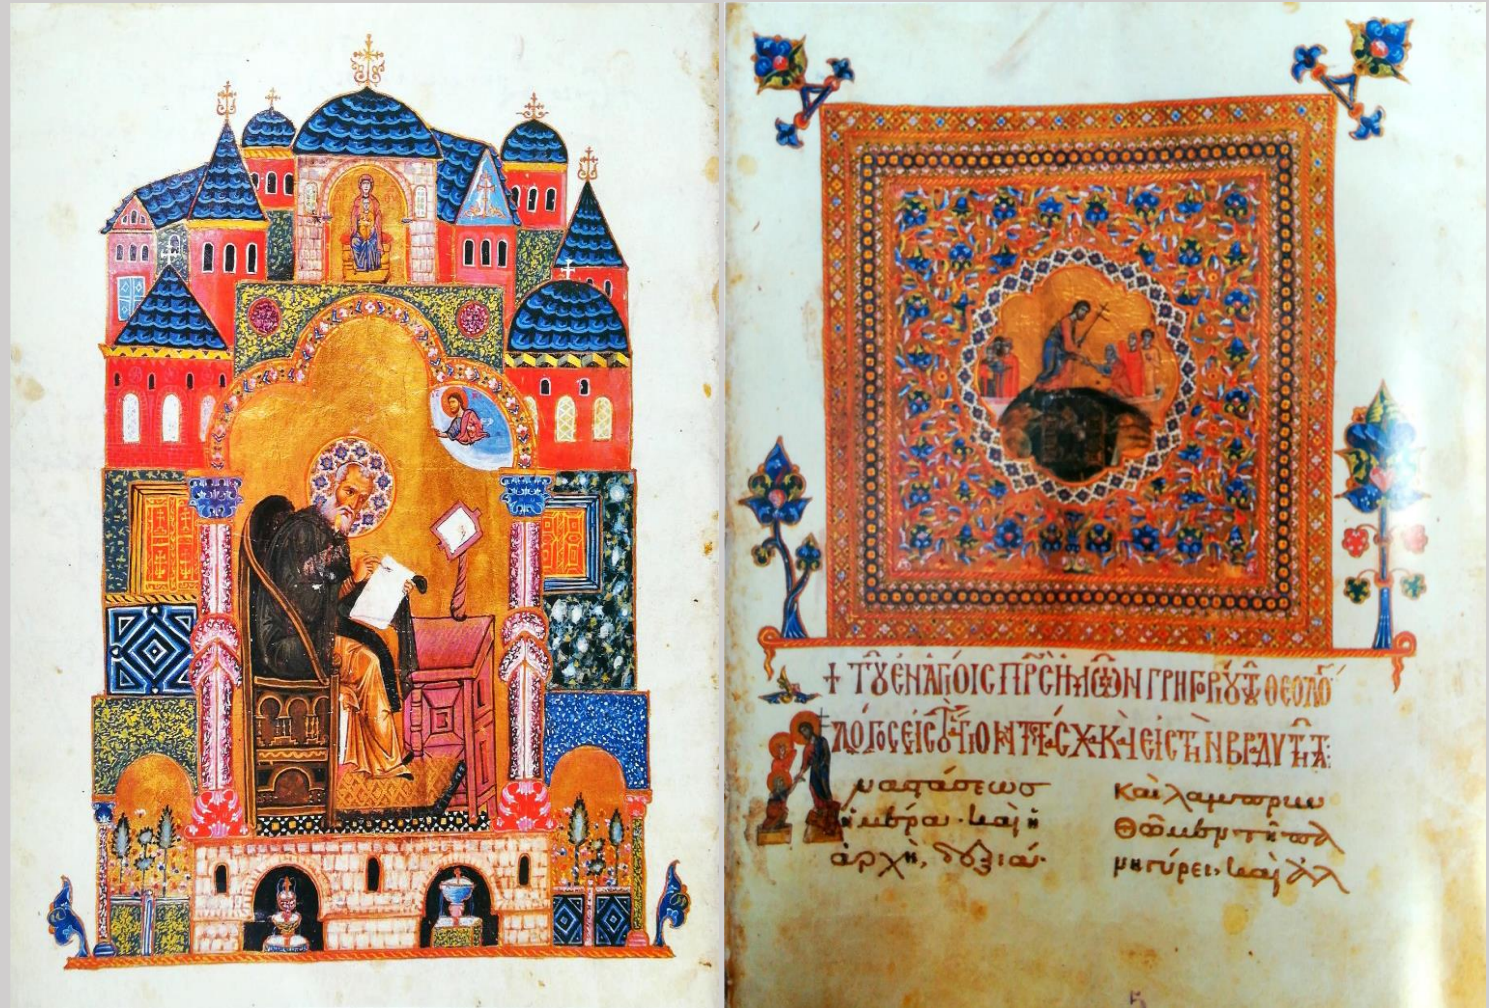 + ΤȢ ΕΝ ΑΓΙΟΙΣ ΠΡΣ ΗΜΩΝ ΓΡΗΓΟΡΙΟΥ ΤΟΥ ΘΕΟΛΟ
ΛΟΓΟΣ ΕΙΣ ΤΟ ΑΓΙΟΝ ΠΑΣΧΑ Κ ΕΙΣ ΤΗΝ ΒΡΑΔΥΤΗΤΑ:
Ἀναστάσεως
ἡμέρα· καὶ ἡ
ἀρχὴ, δεξιά·
καὶ λαμπρυν
θῶμεν τῆ πα
νηγύρει, καὶ ἀλ